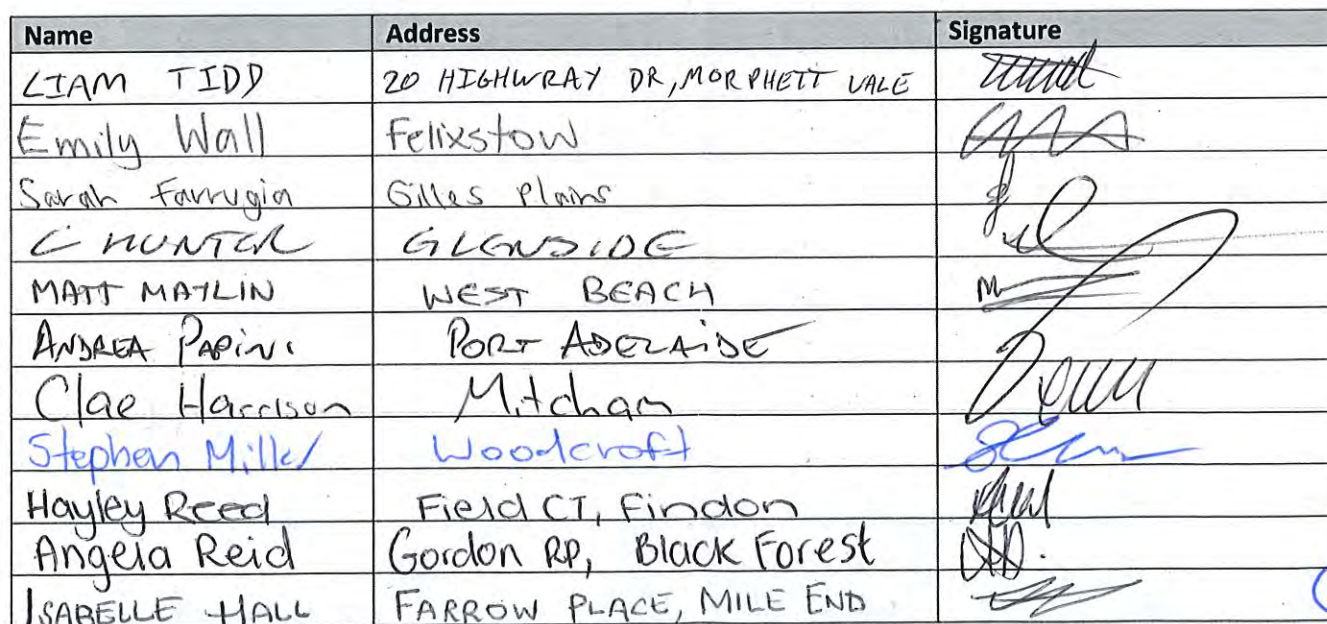 Name Address Signature
LIAM TIDD 20 HIGHWRAY DR, MORPHETT VALE
Emily Wall Felixstow
Sarah Farrugia Gilles Plains
C HUNTER GLENSIDE
MATT MAYLIN WEST BEACH
ANDREA PAPINI PORT ADELAIDE
Clae Harrison Mitcham
Stephen Miller Woodcroft
Hayley Reed Field CT, Findon
Angela Reid Gordon RP, Black Forest
ISABELLE HALL FARROW PLACE, MILE END